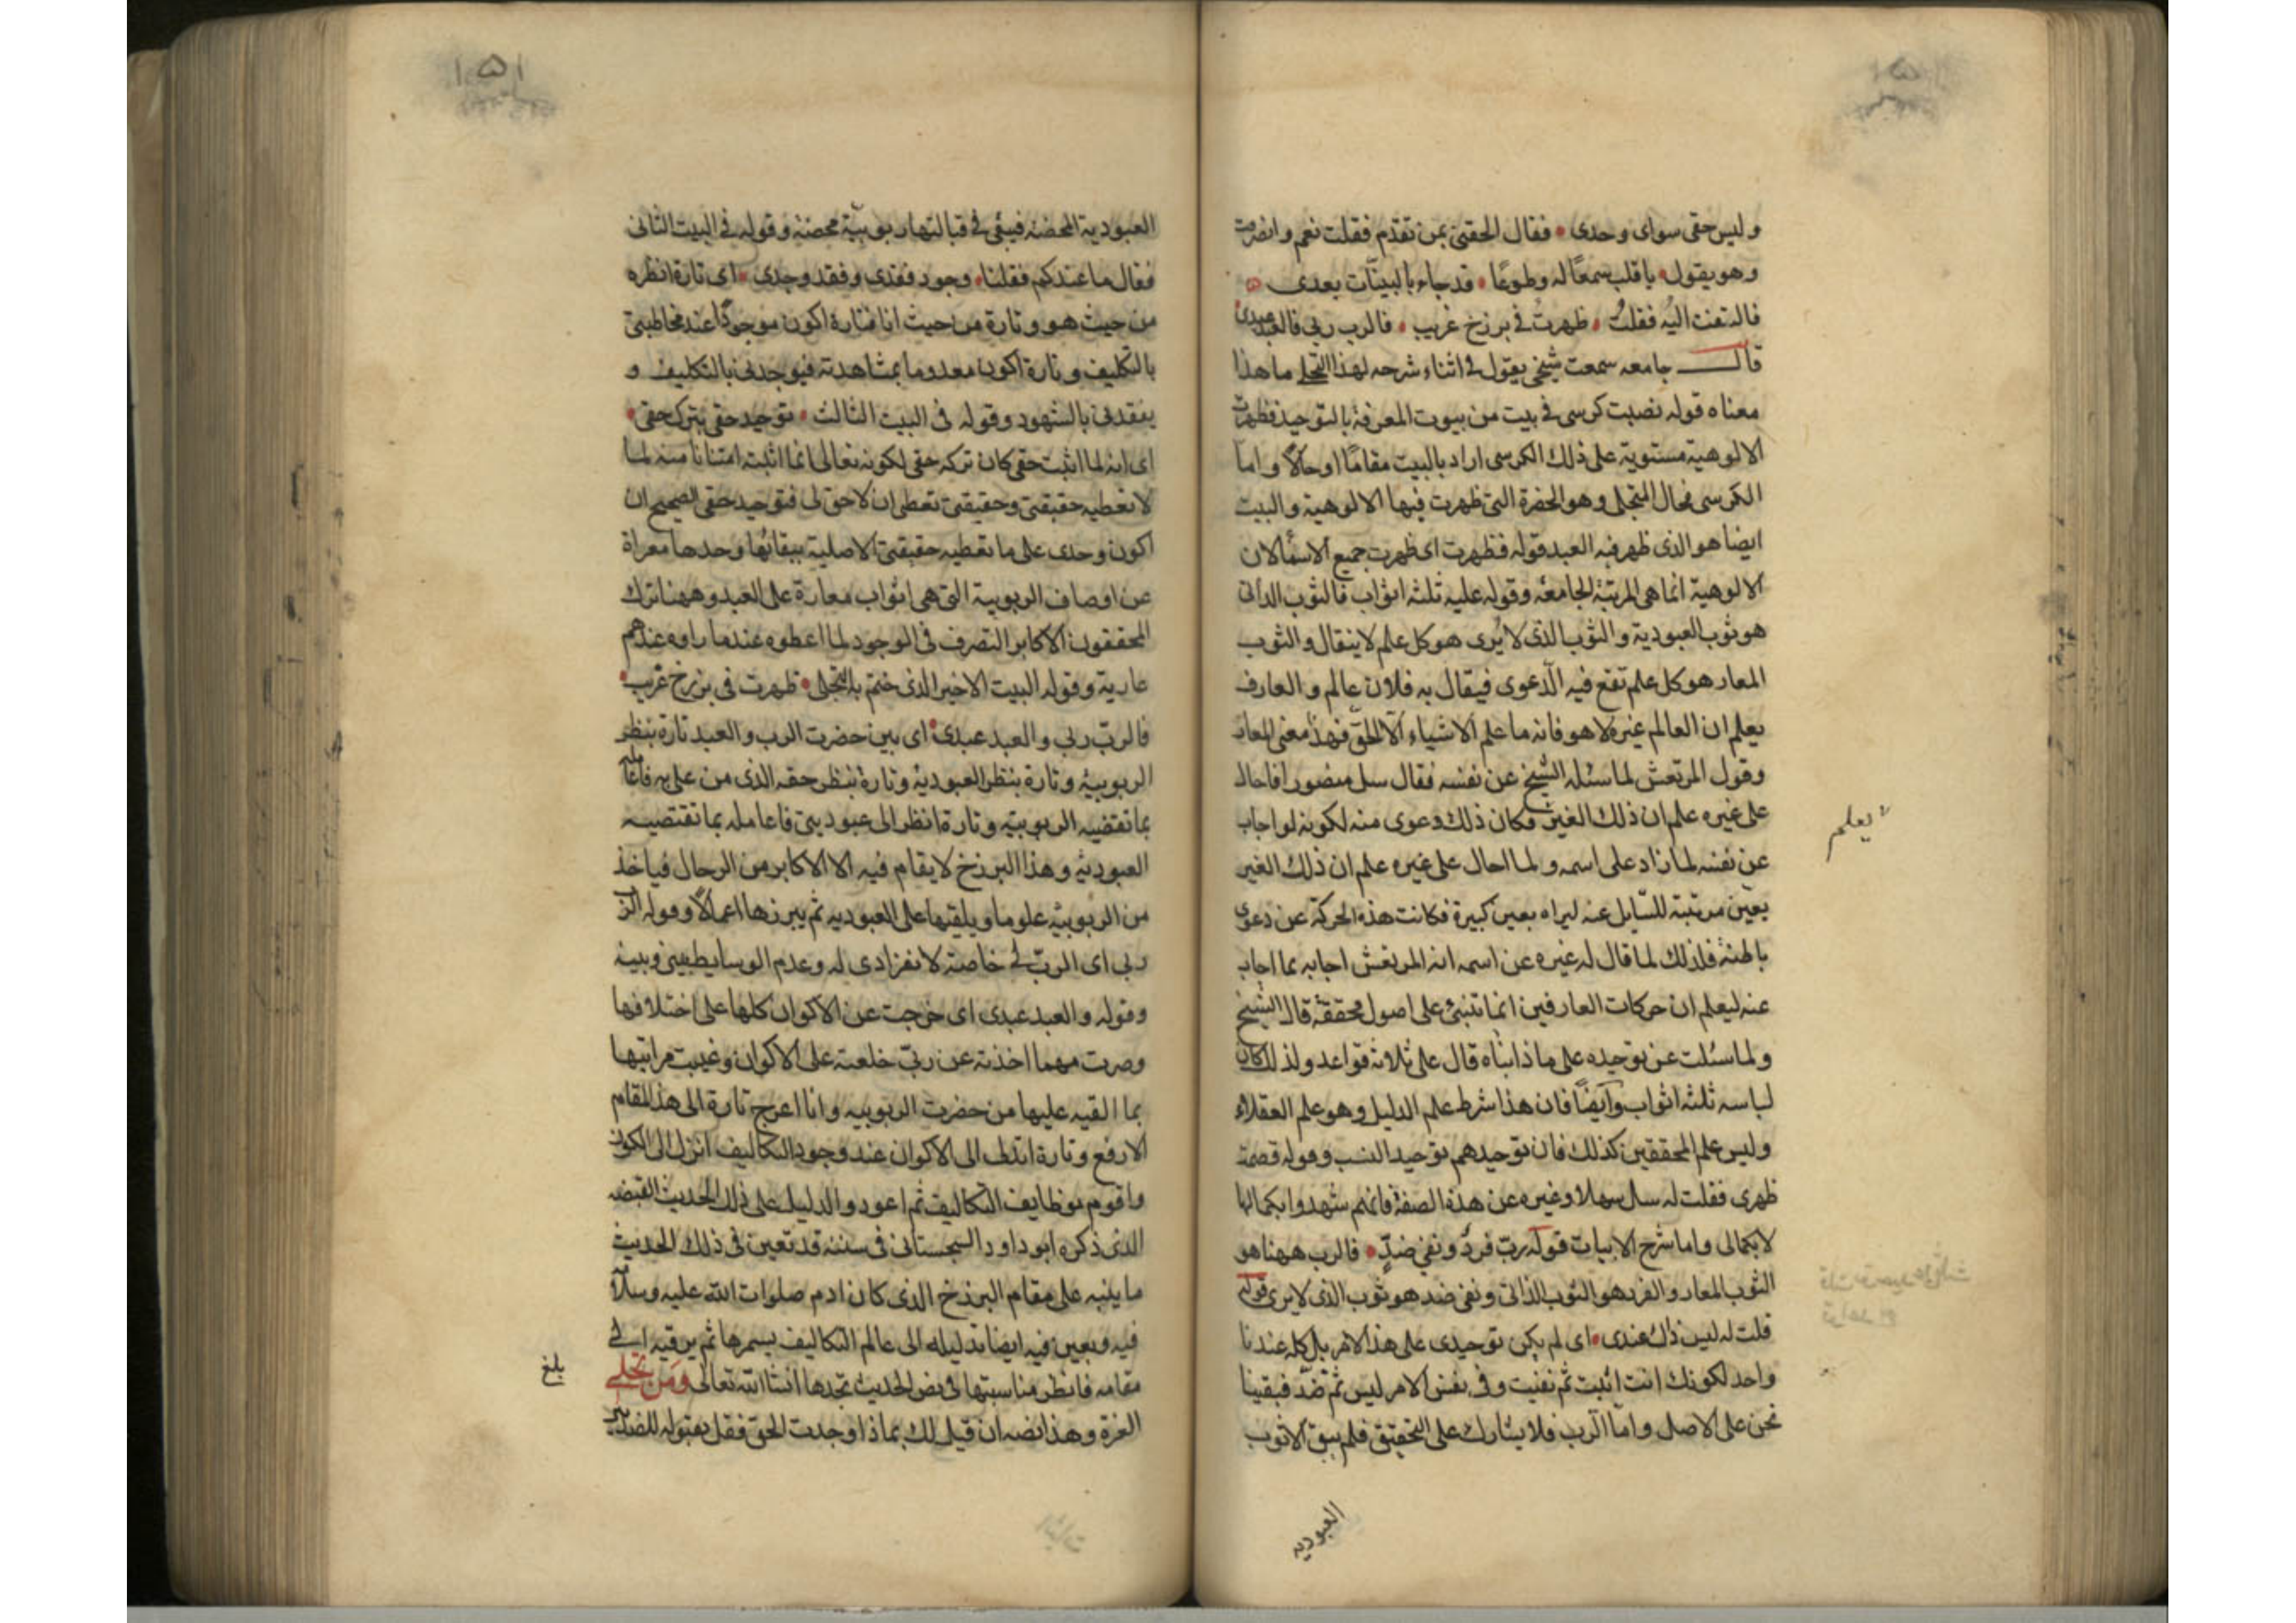 وليس حقى سواى وحدى • فقال الحقنى بمن تقدم فقلت نعم وانصرفت
وهو يقول • يا قلب سمعًا له وطوعًا • قد جاء بالبينات بعدى •
فالتفت اليه فقلتُ • ظهرتُ فى برزخ غريب • فالرب ربى والعبد عبدى
قال جامعه سمعت شيخى يقول فى اثناء شرحه لهذا التجلى ما هذا
معناه قوله نصبت كرسى فى بيت من بيوت المعرفة بالتوحيد فظهرت
الالوهية مستوية على ذلك الكرسى اراد بالبيت مقامًا او حالًا واما
الكرسى فحال المتجلى وهو الحضرة التى ظهرت فيها الالوهية والبيت
ايضا هو الذى ظهر فيه العبد قوله فظهرت اى ظهرت جميع الاسمآ لان
الالوهية انما هى المرتبة الجامعة وقوله عليه ثلثه اثواب فالثوب الذاتى
هو ثوب العبودية والثوب الذى لا يُرى هو كل علم لا ينقال والثوب
المعار هو كل علم تقع فيه الدعوى فيقال به فلان عالم والعارف
يعلم ان العالم غيره لا هو فانه ما علم الاشياء الا الحق فهذا معنى المعار
وقول المرتعش لما سئله الشيخ عن نفسه فقال سل منصور افاحال
على غيره علم ان ذلك الغير فكان ذلك دعوى منه لكونه لو اجاب
عن نفسه لما زاد على اسمه ولما احال على غيره علم ان ذلك الغير
يعين مرتبة للسّايل عنه ليراه بعين كبيرة فكانت هذه الحركة عن دعوى
باطنة فلذلك لما قال له غيره عن اسمه انه المرتعش اجابه بما اجاب
عنه ليعلم ان حركات العارفين انما تنبنى على اصول محققة قال الشيخ
ولما سئلت عن توحيده على ماذا ابناه قال على ثلاثة قواعد ولذلك كان
لباسه ثلثه اثواب وآيضًا فان هذا شرط علم الدليل وهو علم العقلاء
وليس علم المحققين كذلك فان توحيدهم توحيد النسب وقوله قصمت
ظهرى فقلت له سل سهلا وغيره عن هذه الصفة فانهم شهدوا بكمالها
لا بكمالى واما شرح الابيات قوله ربّ فردٌ ونفى ضدٍّ • فالرب ههنا هو
الثوب المعار والفرد هو الثوب الذاتى ونفى ضد هو ثوب الذى لا يرى قوله
قلت له ليس ذاك عندى • اى لم يكن توحيدى على هذا الامر بل كله عندنا
واحد لكونك انت اثبت ثم نفيت وفى نفس الامر ليس ثم ضدّ فبقينا
نحن على الاصل واما الرب فلا يشارك على التحقيق فلم يبق الا ثوب
العبوديه
يعلم
١٥١
العبودية المحضة فيبقى فى قبالتها ربوبيّة محضة وقوله فى البيت الثانى
فقال ما عندكم فقلنا • وجود فقدى وفقد وجدى • اى تارة انظره
من حيث هو وتارة من حيث انا فتارة اكون موجودًا عند مخاطبتى
بالتكليف وتارة اكون معدوما بمشاهدته فيوجدنى بالتكليف و
يفقدنى بالشهود وقوله فى البيت الثالث • توحيد حقى بترك حقى •
اى انه لما اثبت حقى كان تركه حقى لكونه تعالى انما اثبته امتنانا منه لما
لا تعطيه حقيقتى وحقيقتى تعطى ان لا حق لى فتوحيد حقى الصحيح ان
اكون وحدى على ما تعطيه حقيقتى الاصلية ببقائها وحدها معراة
عن اوصاف الربوبية التى هى اثواب معارة على العبد وههنا ترك
المحققون الاكابر التصرف فى الوجود لما اعطوه عندما راوه عندهم
عارية وقوله البيت الاخير الذى ختم به التجلى • ظهرت فى برزخ غريب •
فالربّ ربى والعبد عبدى • اى بين حضرت الرب والعبد تارة ينظر
الربوبية وتارة ينظر العبودية وتارة ينظر حقه الذى من على به فاعامله
بما تقتضيه الربوبية وتارة انظر الى عبوديتى فاعامله بما تقتضيه
العبودية وهذا البرزخ لا يقام فيه الا الاكابر من الرجال فياخذ
من الربوبية علوما ويلقيها على العبوديه ثم يبرزها اعمالًا وقوله الرب
ربى اى الربّ لى خاصة لانفرادى له وعدم الوسايط بينى وبينه
وقوله والعبد عبدى اى خرجت عن الاكوان كلها على اختلافها
وصرت مهما اخذته عن ربى خلعته على الاكوان وغيبت مراتبها
بما القيه عليها من حضرت الربوبيه وانا اعرج تارة الى هذا المقام
الارفع وتارة اتدلى الى الاكوان عند وجود التكاليف انزل الى الكون
واقوم بوظايف التكاليف ثم اعود والدليل على ذلك الحديث القبضه
الذى ذكره ابو داود السجستانى فى سننه قد تعين فى ذلك الحديث
ما ينبه على مقام البرزخ الذى كان ادم صلوات الله عليه وسلامه
فيه ويعين فيه ايضا تدليله الى عالم التكاليف بسرها ثم يرقيه الى
مقامه فانظر مناسبتها فى نص الحديث تجدها انشا الله تعالى ومن تجلى
العزة وهذا نصه ان قيل لك بماذا وجدت الحق فقل بقبوله للضدين
بلغ